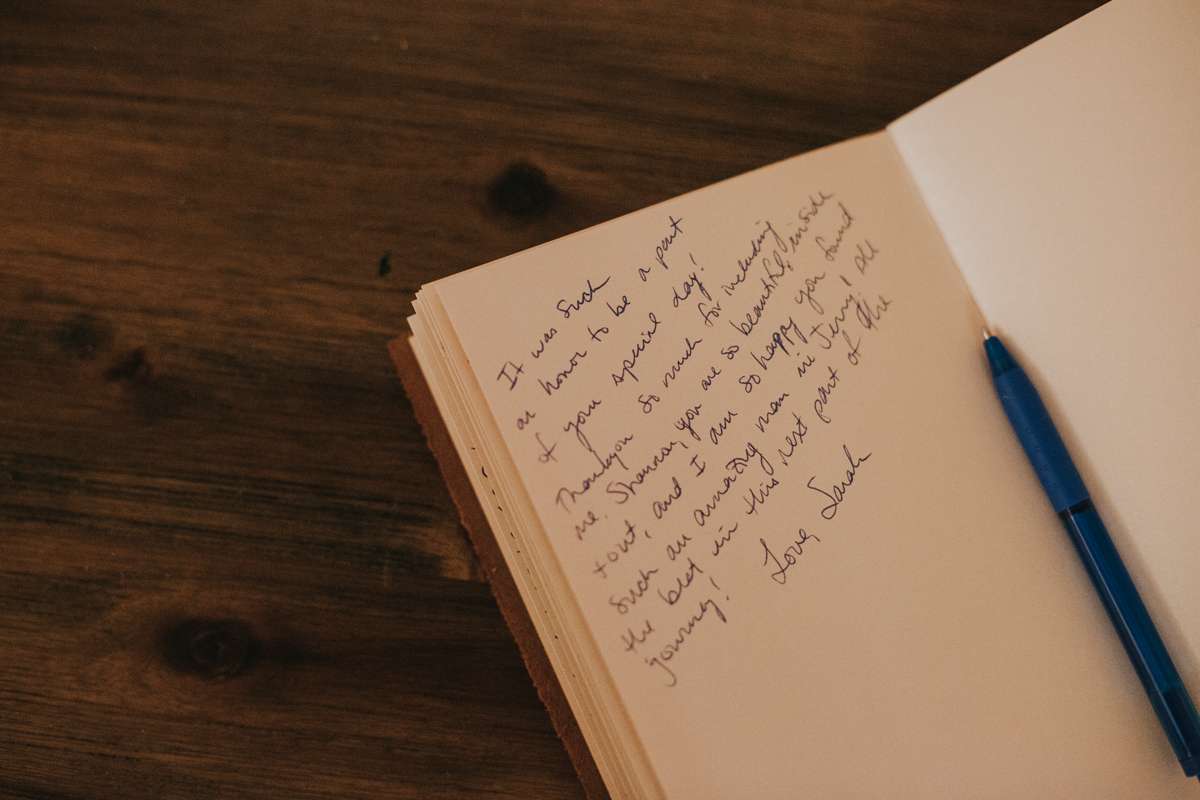 It was such
an honor to be a part
of your special day!
Thankyou so much for including
me. Shannon, you are so beautiful, inside
+ out, and I am so happy you found
such an amazing man in Terry, all
the best in this next part of the
journey!
Love, Sarah